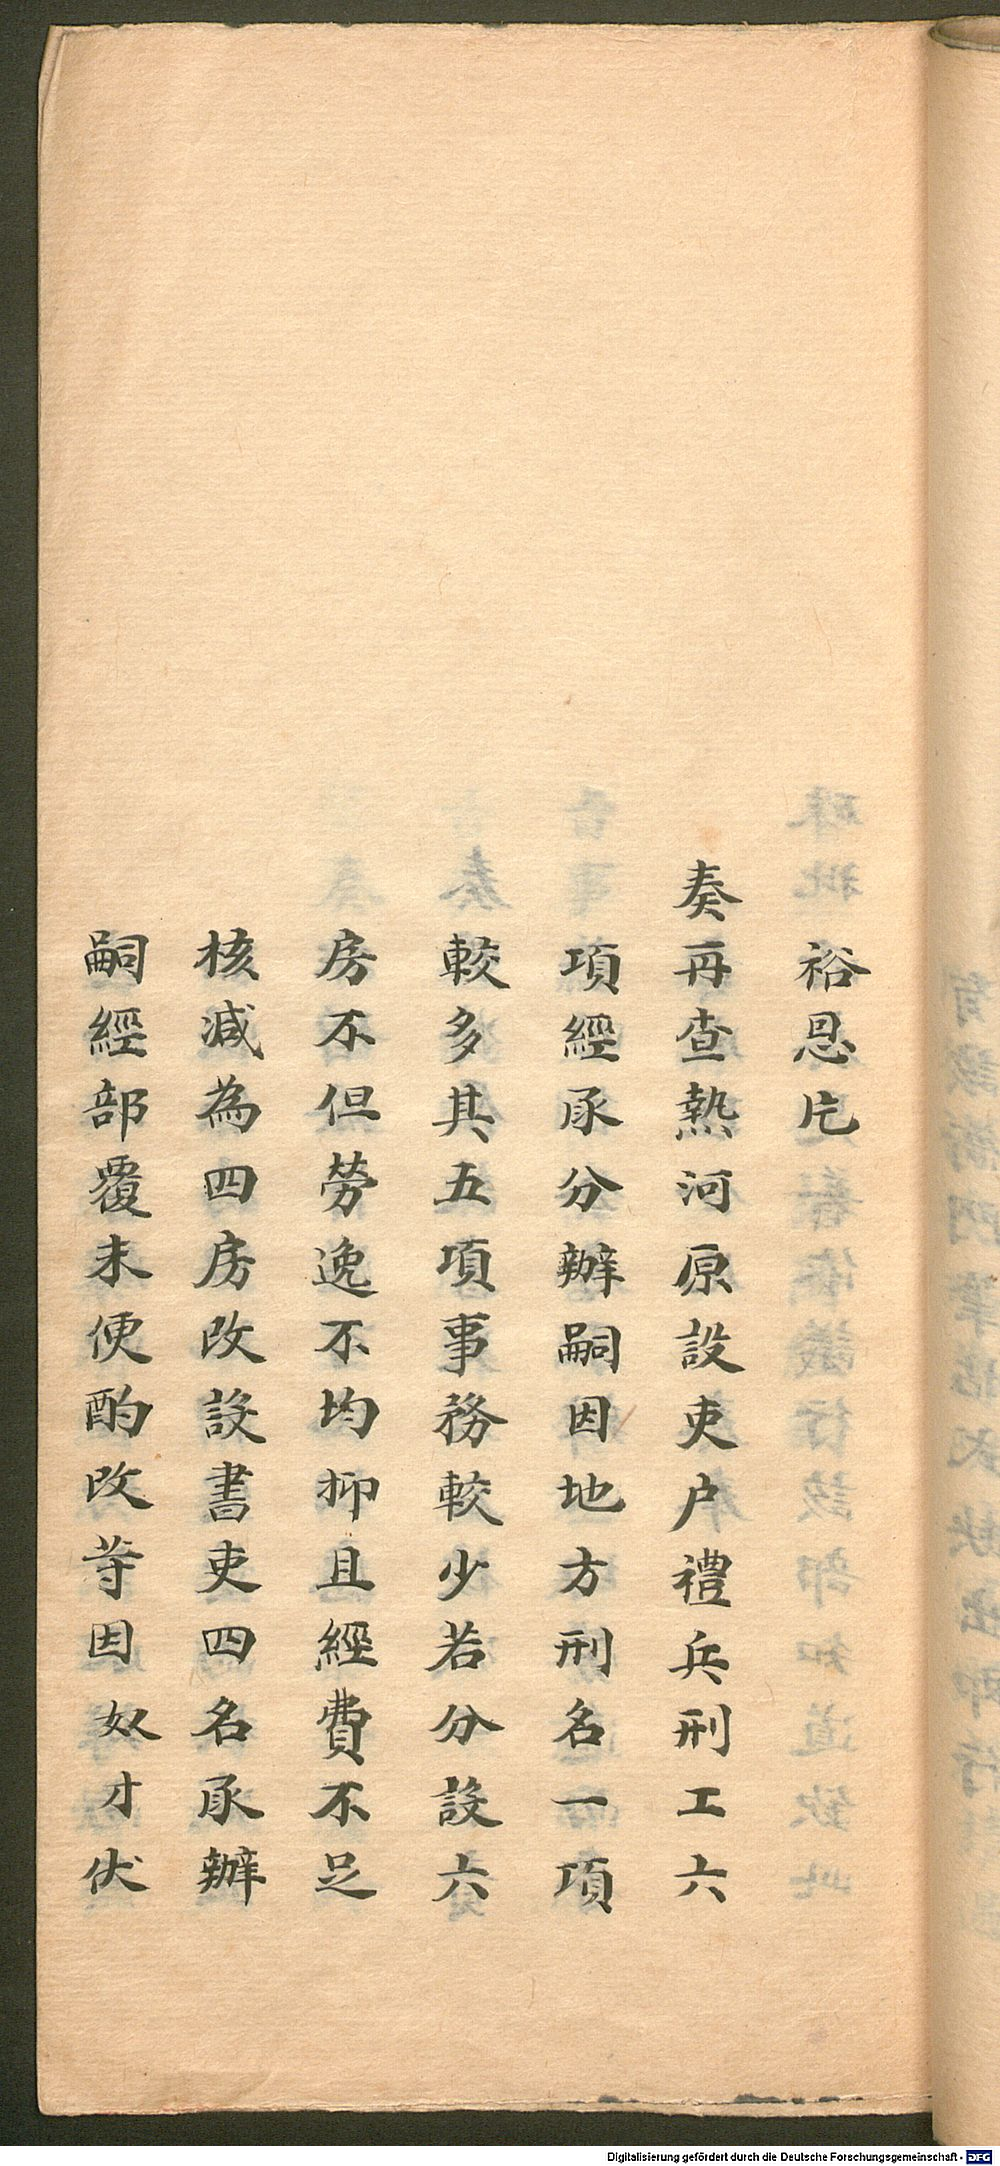 裕恩片
奏再查熱河原設吏户禮兵刑工六
項經承分辦嗣因地方刑名一項
較多其五項事務較少若分設六
房不但勞逸不均抑且經費不足
核減為四房改設書吏四名承辦
嗣經部覆未便酌改等因奴才伏
Digitalisierung gefördert durch die Deutsche Forschungsgemeinschaft - DFG